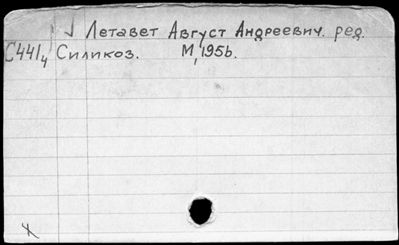 Летавет Август Андреевич. ред.
С44/4 Силикоз. М, 1956.